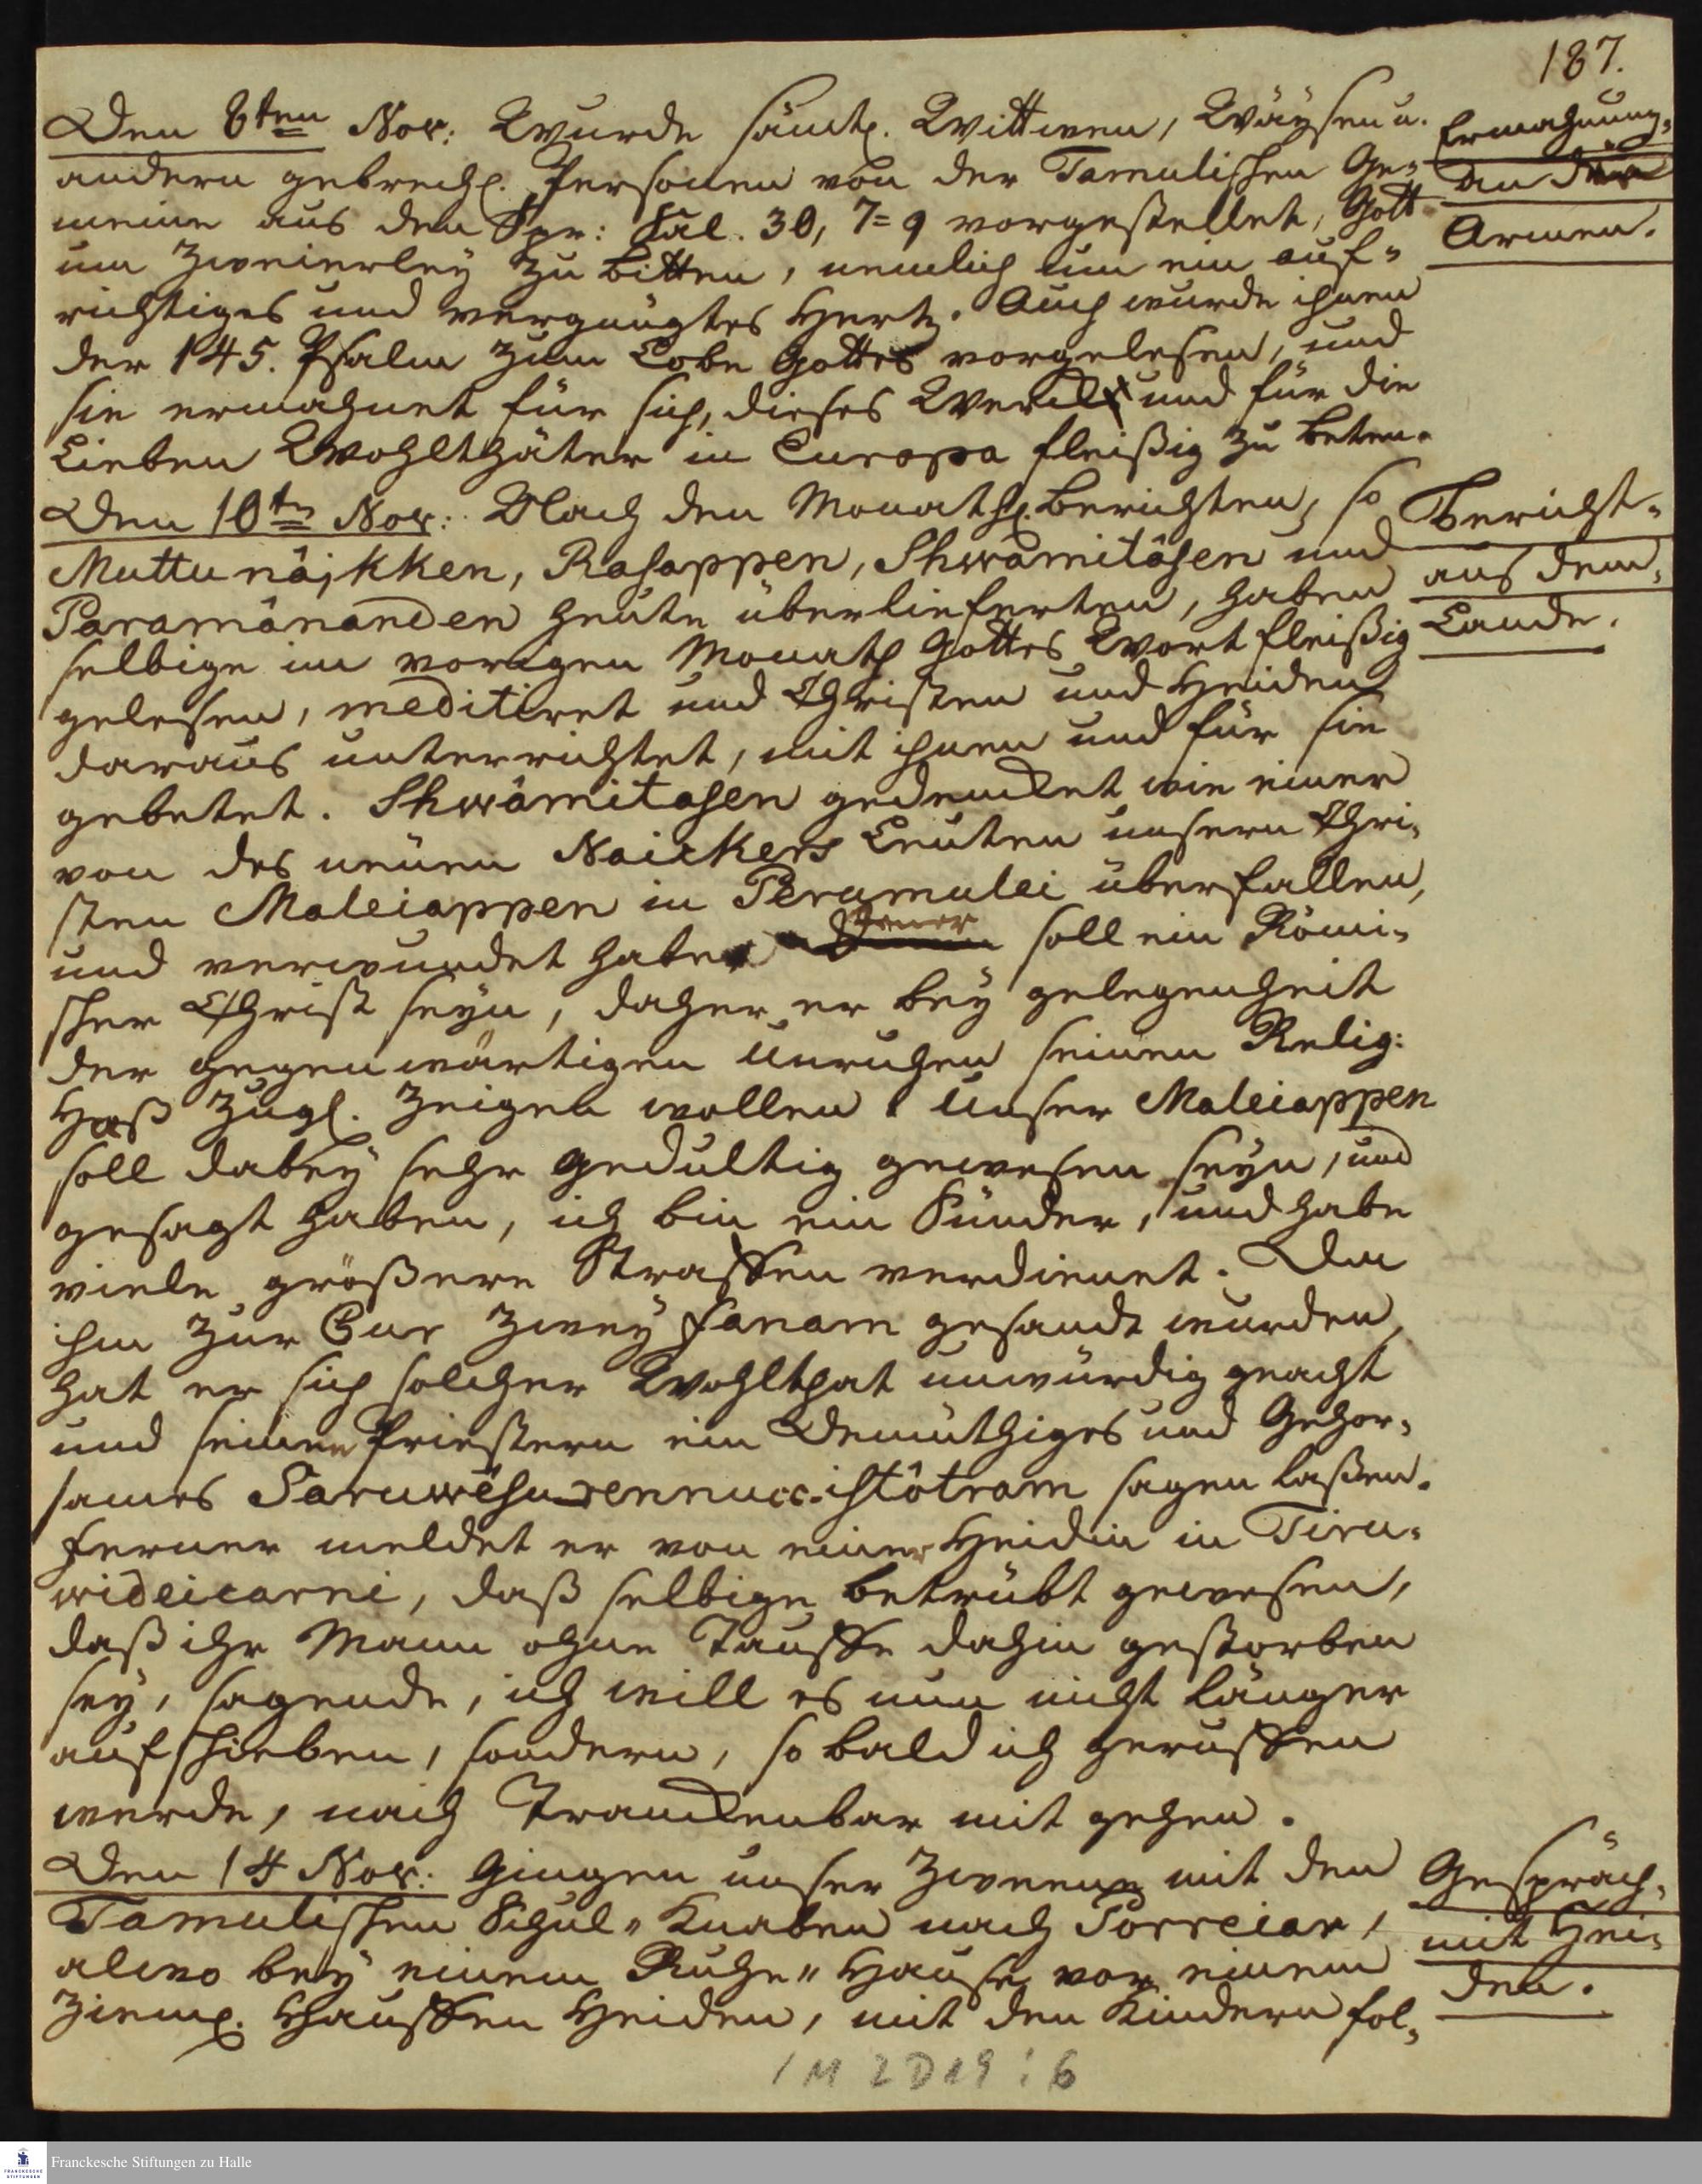 187.
Den 8ten Nov: Wurde sämtl. Wittwen, Wäysen u.
andern gebrechl. Personen von der Tamulischen Ge-
meine aus den Spr: Sal. 30, 7=9 vorgestellet, Gott
um Zweierleÿ zu bitten, nemlich um ein auf-
richtiges und vergnügtes Hertz. Auch wurde ihnen
der 145. Psalm zum Lobe Gottes vorgelesen, und
sie ermahnet für sich, dieses Werck und für die
Lieben Wohlthäter in Europa fleißig zu beten.
Ermahnung
an die
Armen.
Den 10tn Nov: Nach den Monathl. Berichten, so
Muttunâjkken, Rasappen, Shwâmitâsen und
Paramânanden heute überlieferten, haben
selbige im vorigen Monath Gottes Wort fleißig
gelesen, meditiret und Christen und Heiden
daraus unterrichtet, mit ihnen und für sie
gebetet. Shwâmitasen gedencket wie einer
von des neuen Naickers Leuten unsern Chri-
sten Maleiappen in Perumulei überfallen,
und verwundet habe. Jener soll ein Römi-
scher Christ seÿn, daher er beÿ gelegenheit
der gegenwärtigen Unruhen seinen Relig:
Haß zugl. zeigen wollen. Unser Maleiappen
soll dabeÿ sehr gedultig gewesen seÿn, und
gesagt haben, ich bin ein Sünder, und habe
viele größere Straffen verdienet. Da
ihm zur Cur zweÿ fanam gesandt wurden,
hat er sich solcher Wohlthat unwürdig geacht
und seinen Priestern ein Demüthiges und Gehor-
sames sagen laßen.
Ferner meldet er von einer Heidin in Tiru-
wideicarni, daß selbige betrübt gewesen,
daß ihr Mann ohne Tauffe dahin gestorben
seÿ, sagende, ich will es nun nicht länger
aufschieben, sondern, so bald ich geruffen
werde, nach Tranckenbar mit gehen.
Bericht
aus dem
Lande.
Den 14 Nov: Gingen unser Zweene mit den
Tamulischen Schul-Knaben nach Porreiar,
alwo beÿ einem Ruhe-Hause vor einem
zieml. Hauffen Heiden, mit den Kindern fol-
Gespräch
mit Hei-
den.
1 M 2 D 19 : 6
Franckesche Stiftungen zu Halle